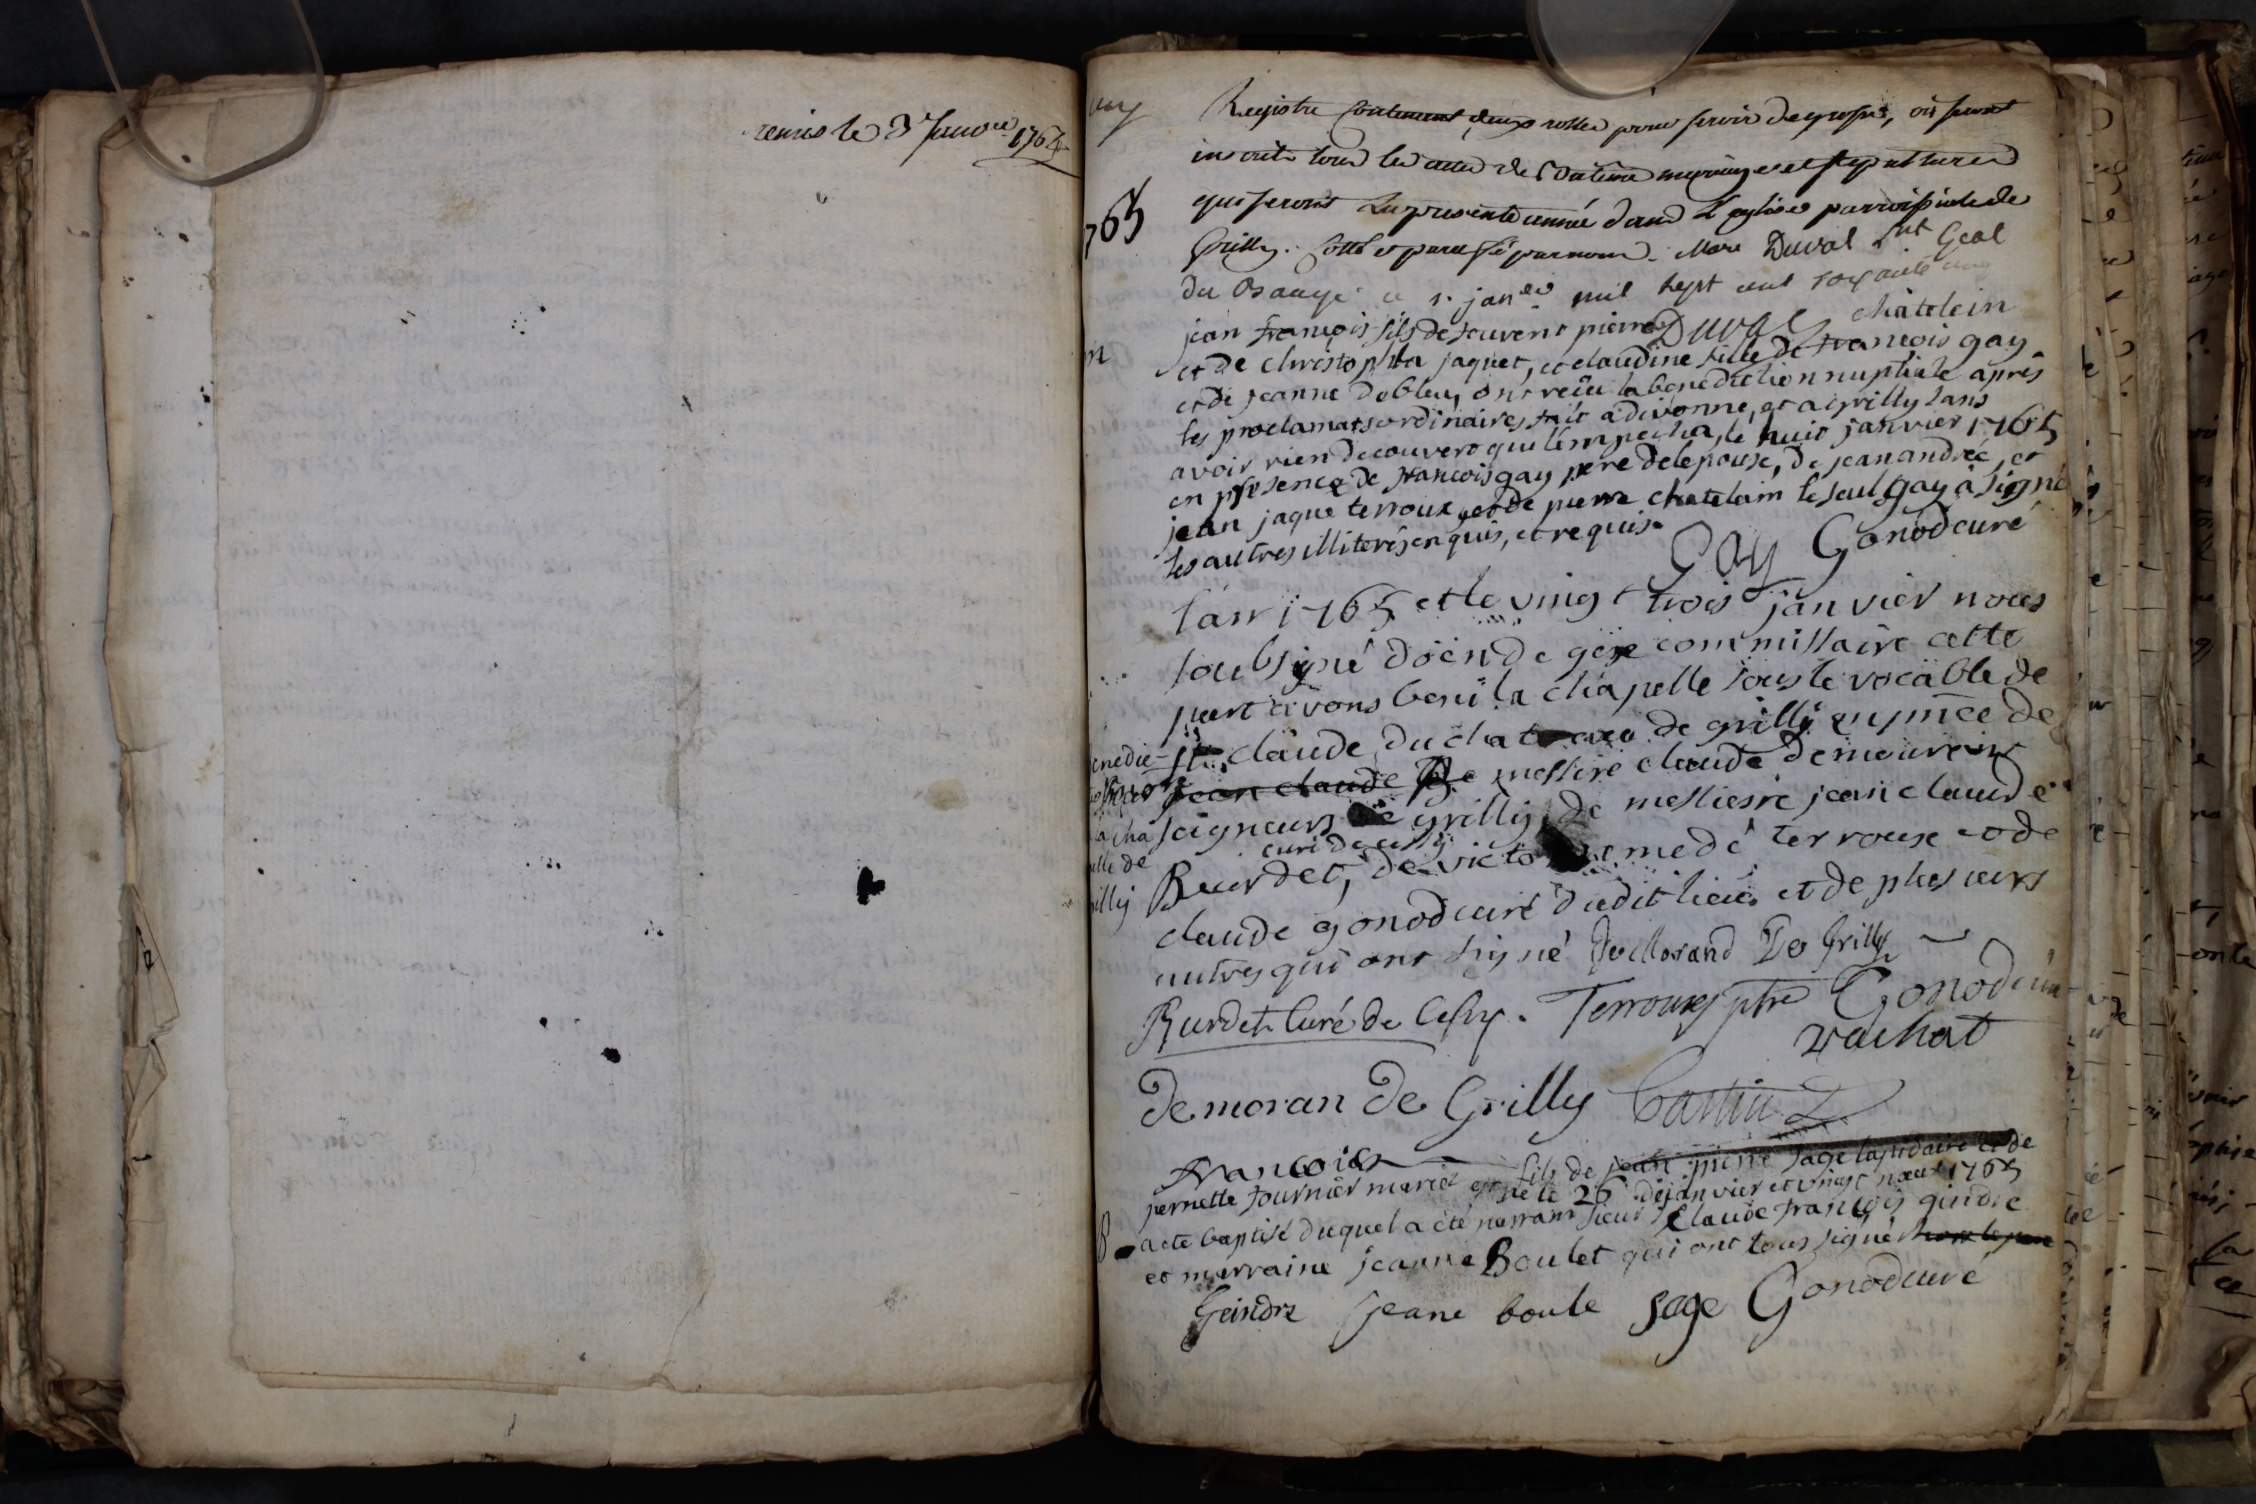 remis le 3 Janvre 1764
Registre Contenant deux rolles pour servir de grosse, où seront
inscrits tous les actes de Batême mariage et sepultures
qui seront La presente année dans L'eglise parroissiale de
Grilly. Cotté et paraffé par nous Marc Duval Lnt Geal
du Bailliage ce 1. janer mil sept cent soixante
765
Duval
jean françois fils de feu vent pierre châtelein
et de christophla jaquet, et claudine fille de francois gay
et de jeanne dobleu, ont reçu la benediction nuptiale aprês
les proclamats ordinaires fait à divonne, et a grilly sans
avoir rien decouvert qui l'empecha, le huit janvier 1765
en presence de francois gay pere de lepouse, de jean andrée, et
jean jaque terroux et de pierre chatelain le seul gay à signé
les autres illiterés enquis, et requis.
Gay Gonod curé
l'an 1765 et le vingt trois janvier nous
soubsigné doien de gex commissaire cette
part avons beni la chapelle sous le vocable de
st. claude du chateau de grilly en pnce de
jean claude De messire claude de mourant
seigneurs de grilly, de messiere jean claude
curé de cessy
Burdet, de victor amedé terroux et de
claude gonod curé dudit lieu, et de plusieurs
autres qui ont signé De Morand De Grilly
enedic-
la cha
elle de
illy
Burdet Curé de Cessy. Terroux ptre Gonod curé
vachat
De moran De Grilly
francois fils de jean pierre sage lapidaire et de
pernette fournier mariés est né le 26 de janvier et vingt neuf 1765
a ete baptisé duquel a été parrain sieur claude françois gindre
et marraine jeanne Boulet qui ont tous signé hors le pere
Geindre Jeane boule Sage Gonod curé